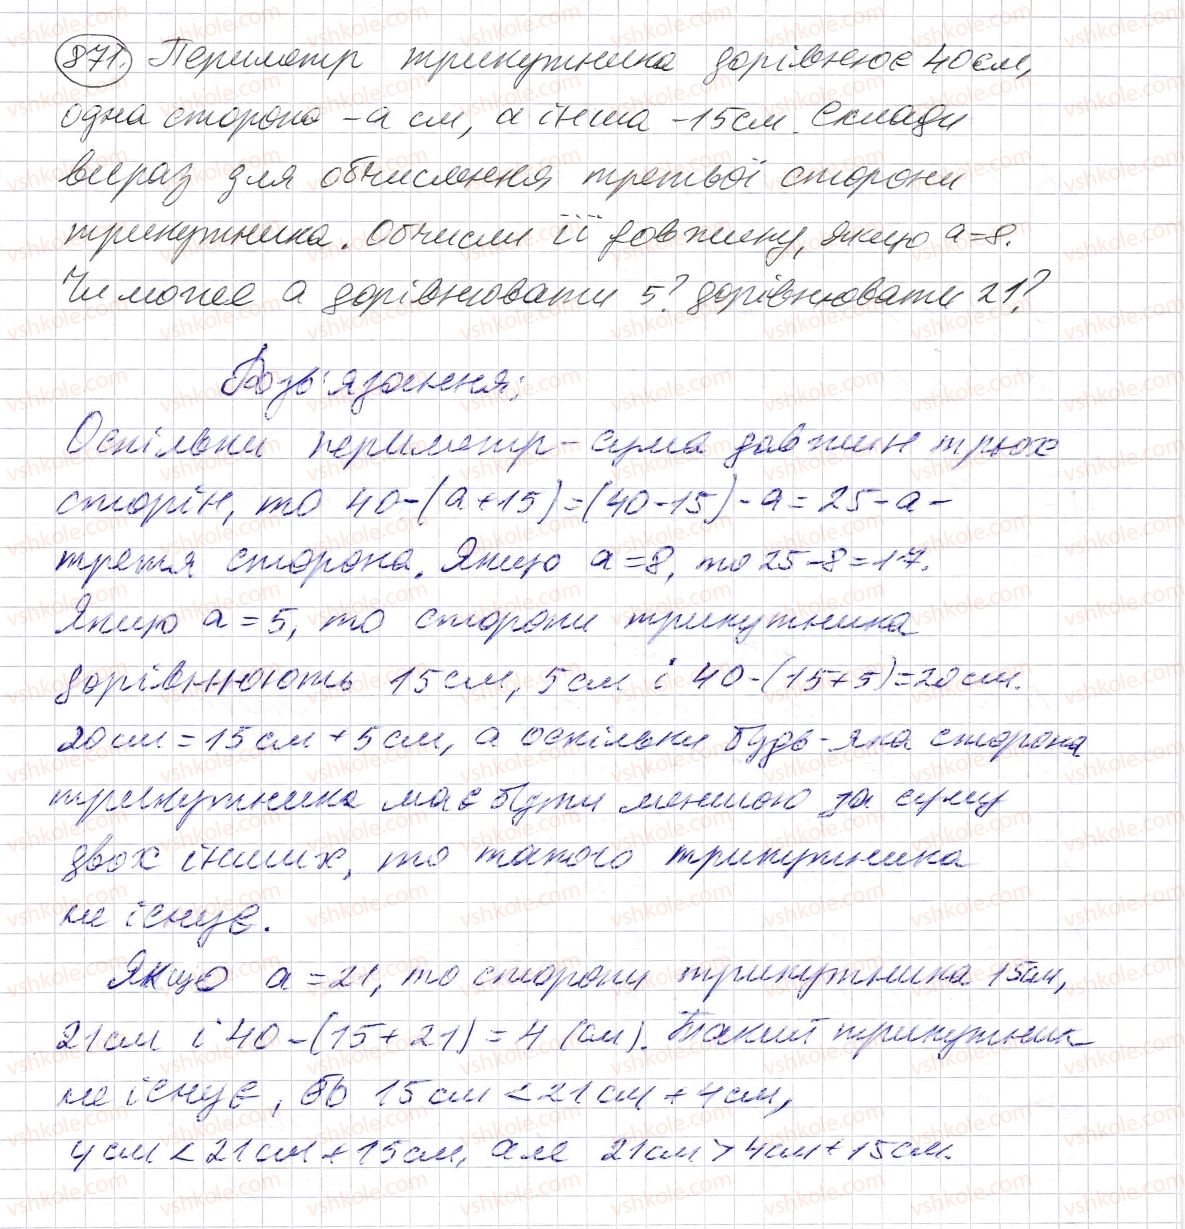 871. Периметр трикутника дорівнює 40 см,
одна сторона - а см, а інша - 15 см. Склади
вираз для обчислення третьої сторони
трикутника. Обчисли її довжину, якщо а=8.
Чи може а дорівнювати 5? дорівнювати 21?
Розв'язання:
Оскільки периметр - сума довжин трьох
сторін, то 40-(а+15)=(40-15)-а=25-а-
третя сторона. Якщо а=8, то 25-8=17.
Якщо а=5, то сторони трикутника
дорівнюють 15см, 5см і 40-(15+5)=20см.
20см=15см+5см, а оскільки будь-яка сторона
трикутника має бути меншою за суму
двох інших, то такого трикутника
не існує.
Якщо а=21, то сторони трикутника 15см,
21см і 40-(15+21)=4 (см). Такий трикутник
не існує, бо 15см<21см+4см,
4см<21см+15см, але 21см>4см+15см.